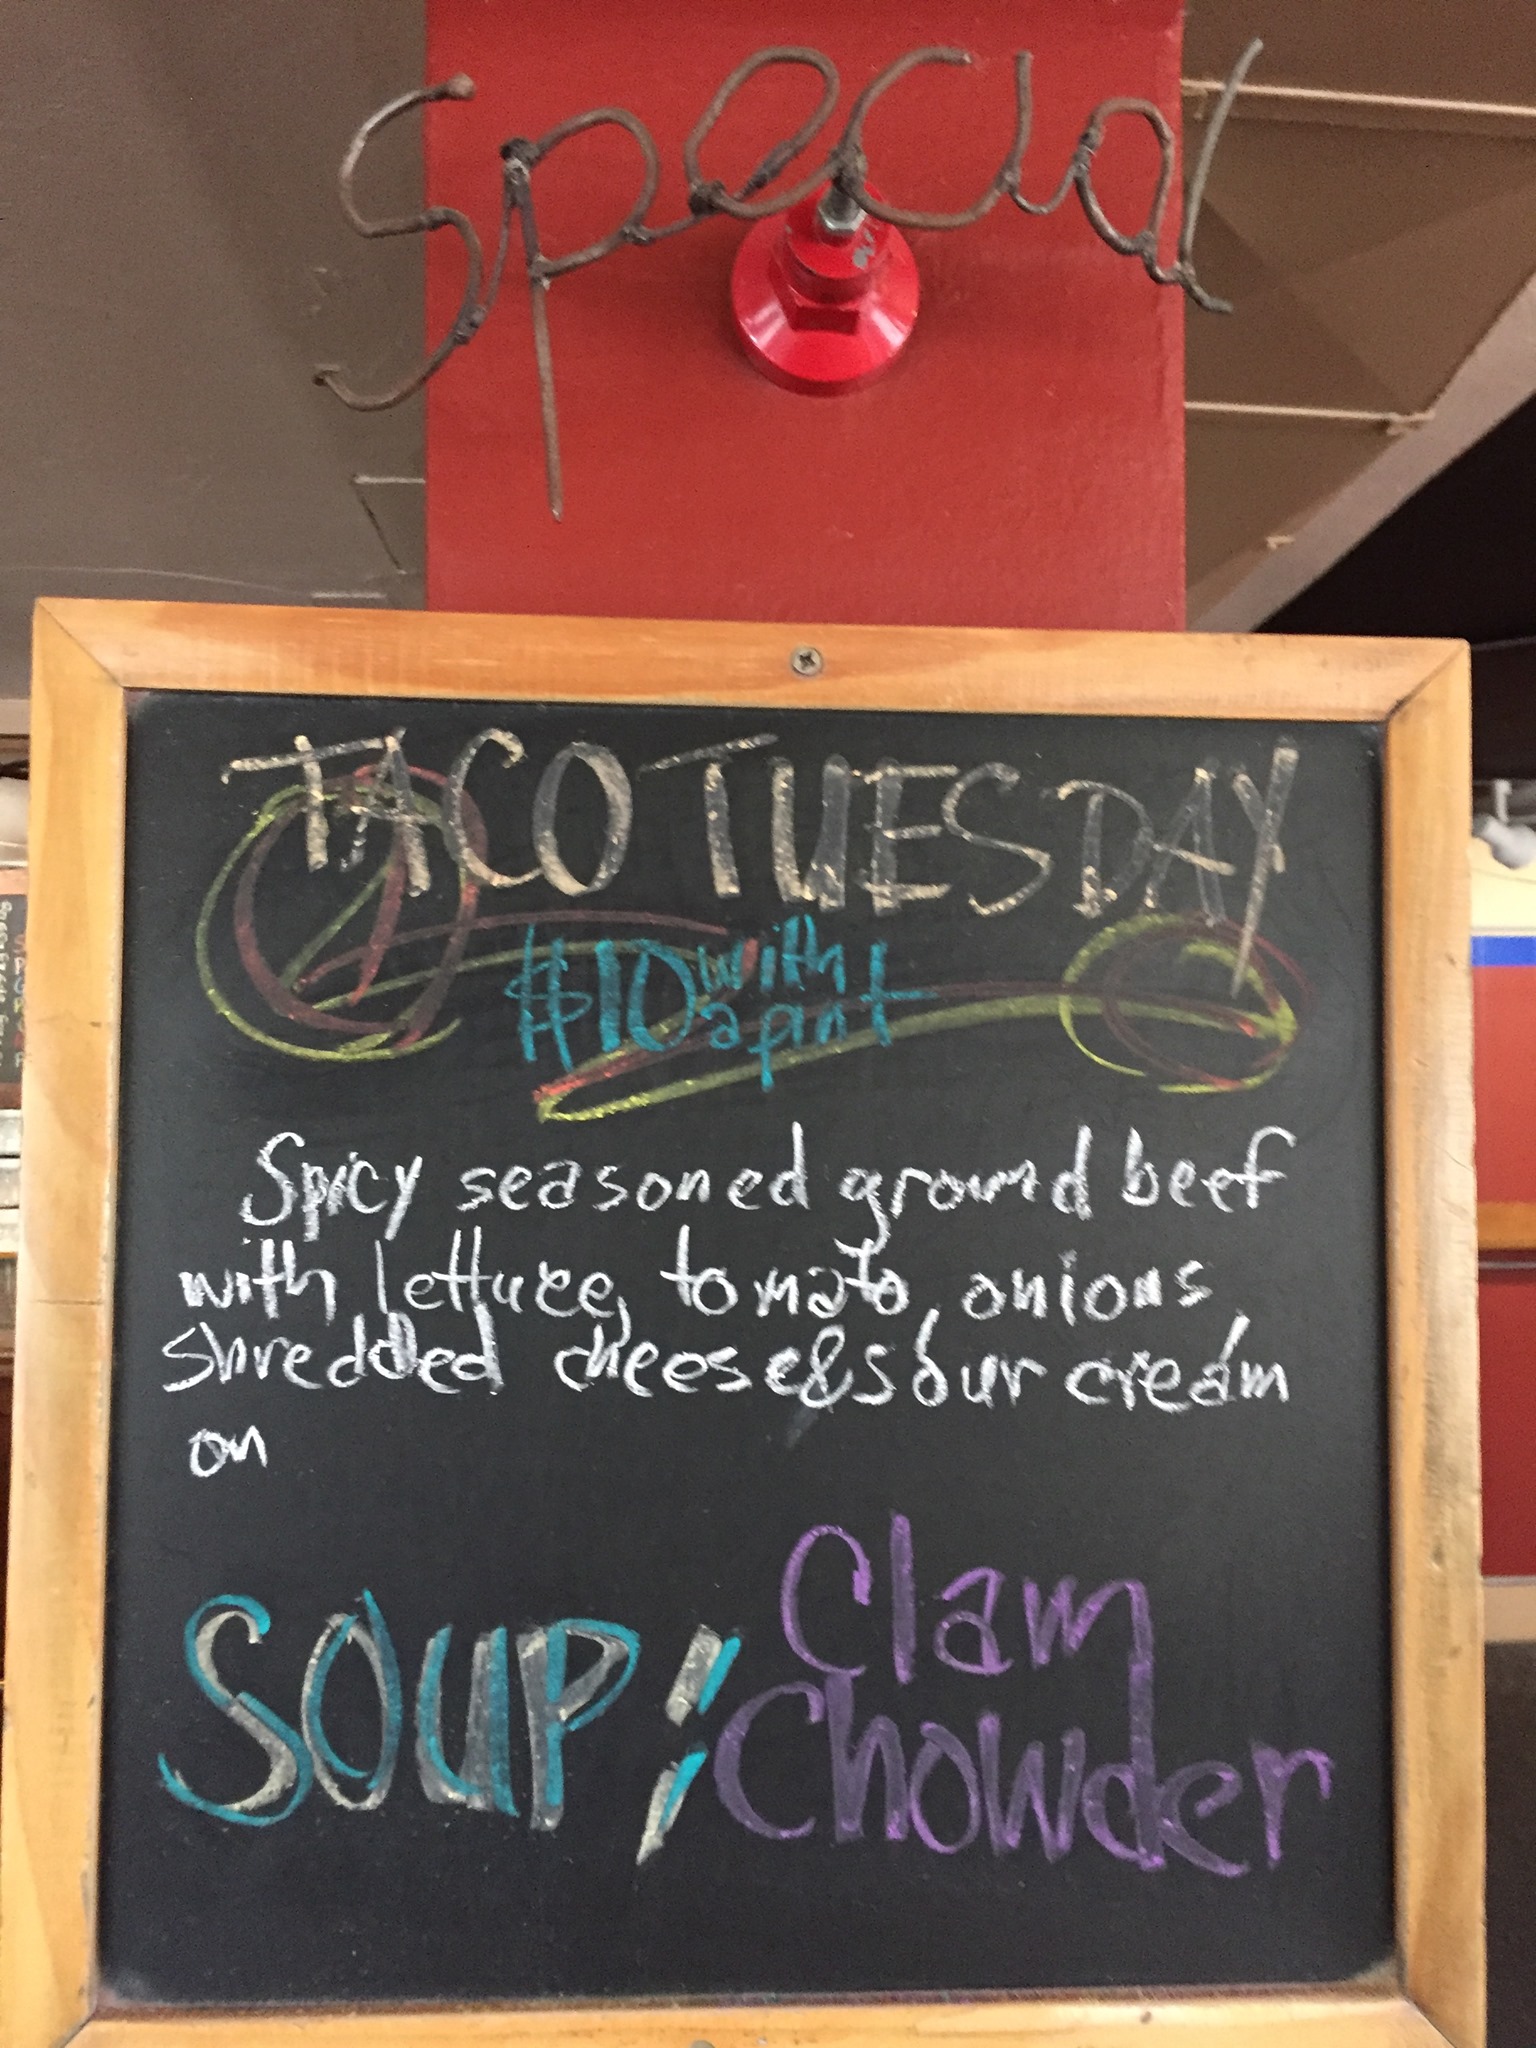 Special
TACO TUESDAY
$10 with
a pint
Spicy seasoned ground beef
with lettuce, tomato, onions,
shredded cheese & sour cream
on
SOUP: Clam
Chowder